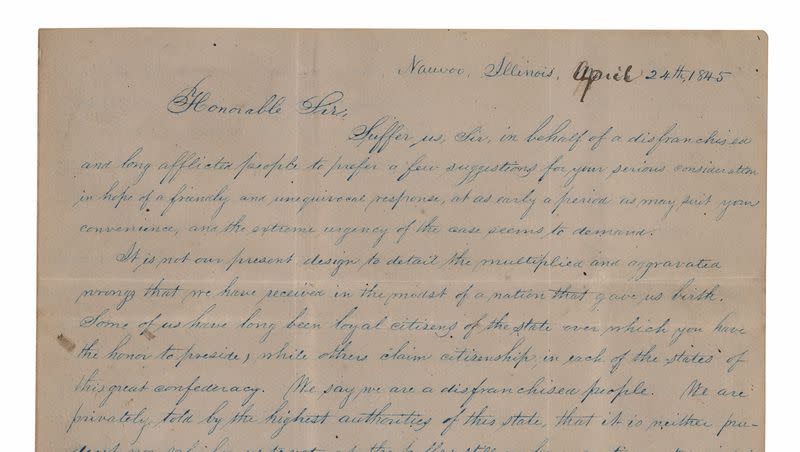 Nauvoo, Illinois, April 24th, 1845
Honorable Sir,
Suffer us, Sir, in behalf of a disfranchised
and long afflicted people to prefer a few suggestions for your serious consideration
in hope of a friendly and unequivocal response, at as early a period as may suit your
convenience, and the extreme urgency of the case seems to demand.
It is not our present design to detail the multiplied and aggravated
wrongs that we have received in the midst of a nation that gave us birth.
Some of us have long been loyal citizens of the state over which you have
the honor to preside, while others claim citizenship in each of the states of
this great confederacy. We say we are a disfranchised people. We are
privately told by the highest authorities of this state, that it is neither pru-
dent nor safe for us to vote at the polls; still